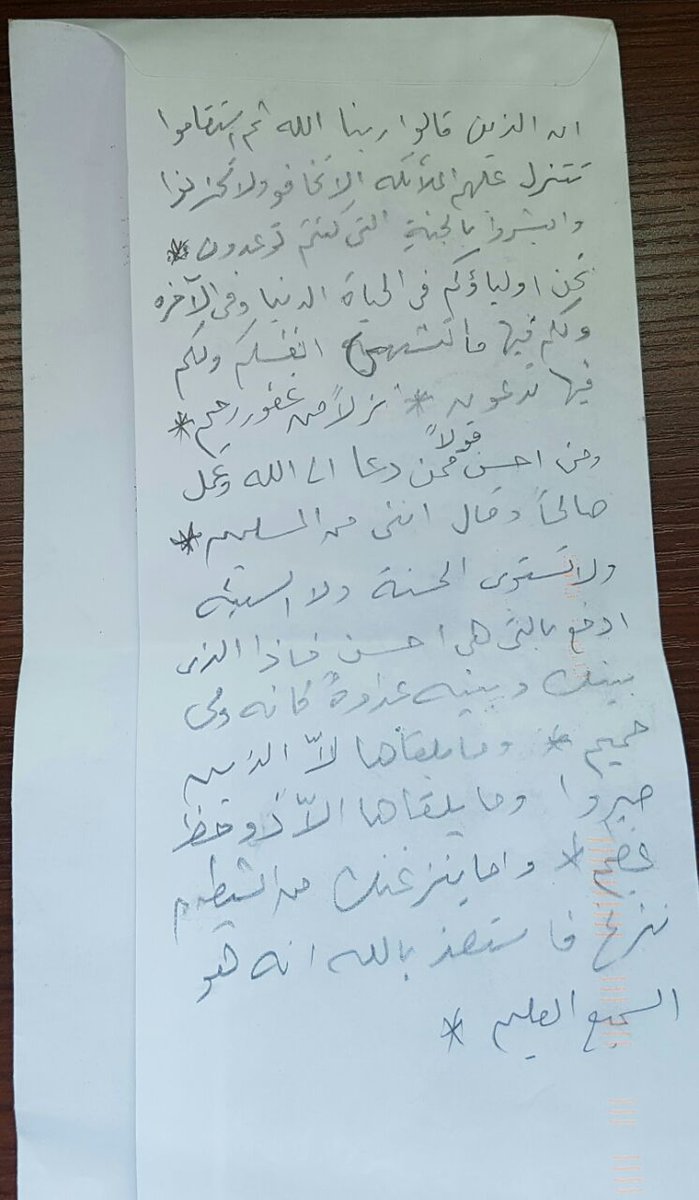 ان الذين قالوا ربنا الله ثم استقاموا
تتنزل عليهم الملائكه الا تخافو ولا تحزنوا
وابشروا بالجنة التى كنتم توعدون *
نحن اولياؤكم فى الحياة الدنيا وفى الآخره
ولكم فيها ما تشتهى انفسكم ولكم
فيها تدعون * نزلاً من غفور رحيم *
ومن احسن قولاً ممن دعا الى الله وعمل
صالحاً وقال اننى من المسلمين *
ولا تستوى الحسنة ولا السيئه
ادفع بالتى هى احسن فاذا الذى
بينك وبينه عداوةً كانه ولى
حميم * وما يلقاها لاّ الذين
صبروا وما يلقاها الاّ ذو حظ
عظيم * واما ينزغنك من الشيطن
نزغ فاستعذ بالله انه هو
السميع العليم *